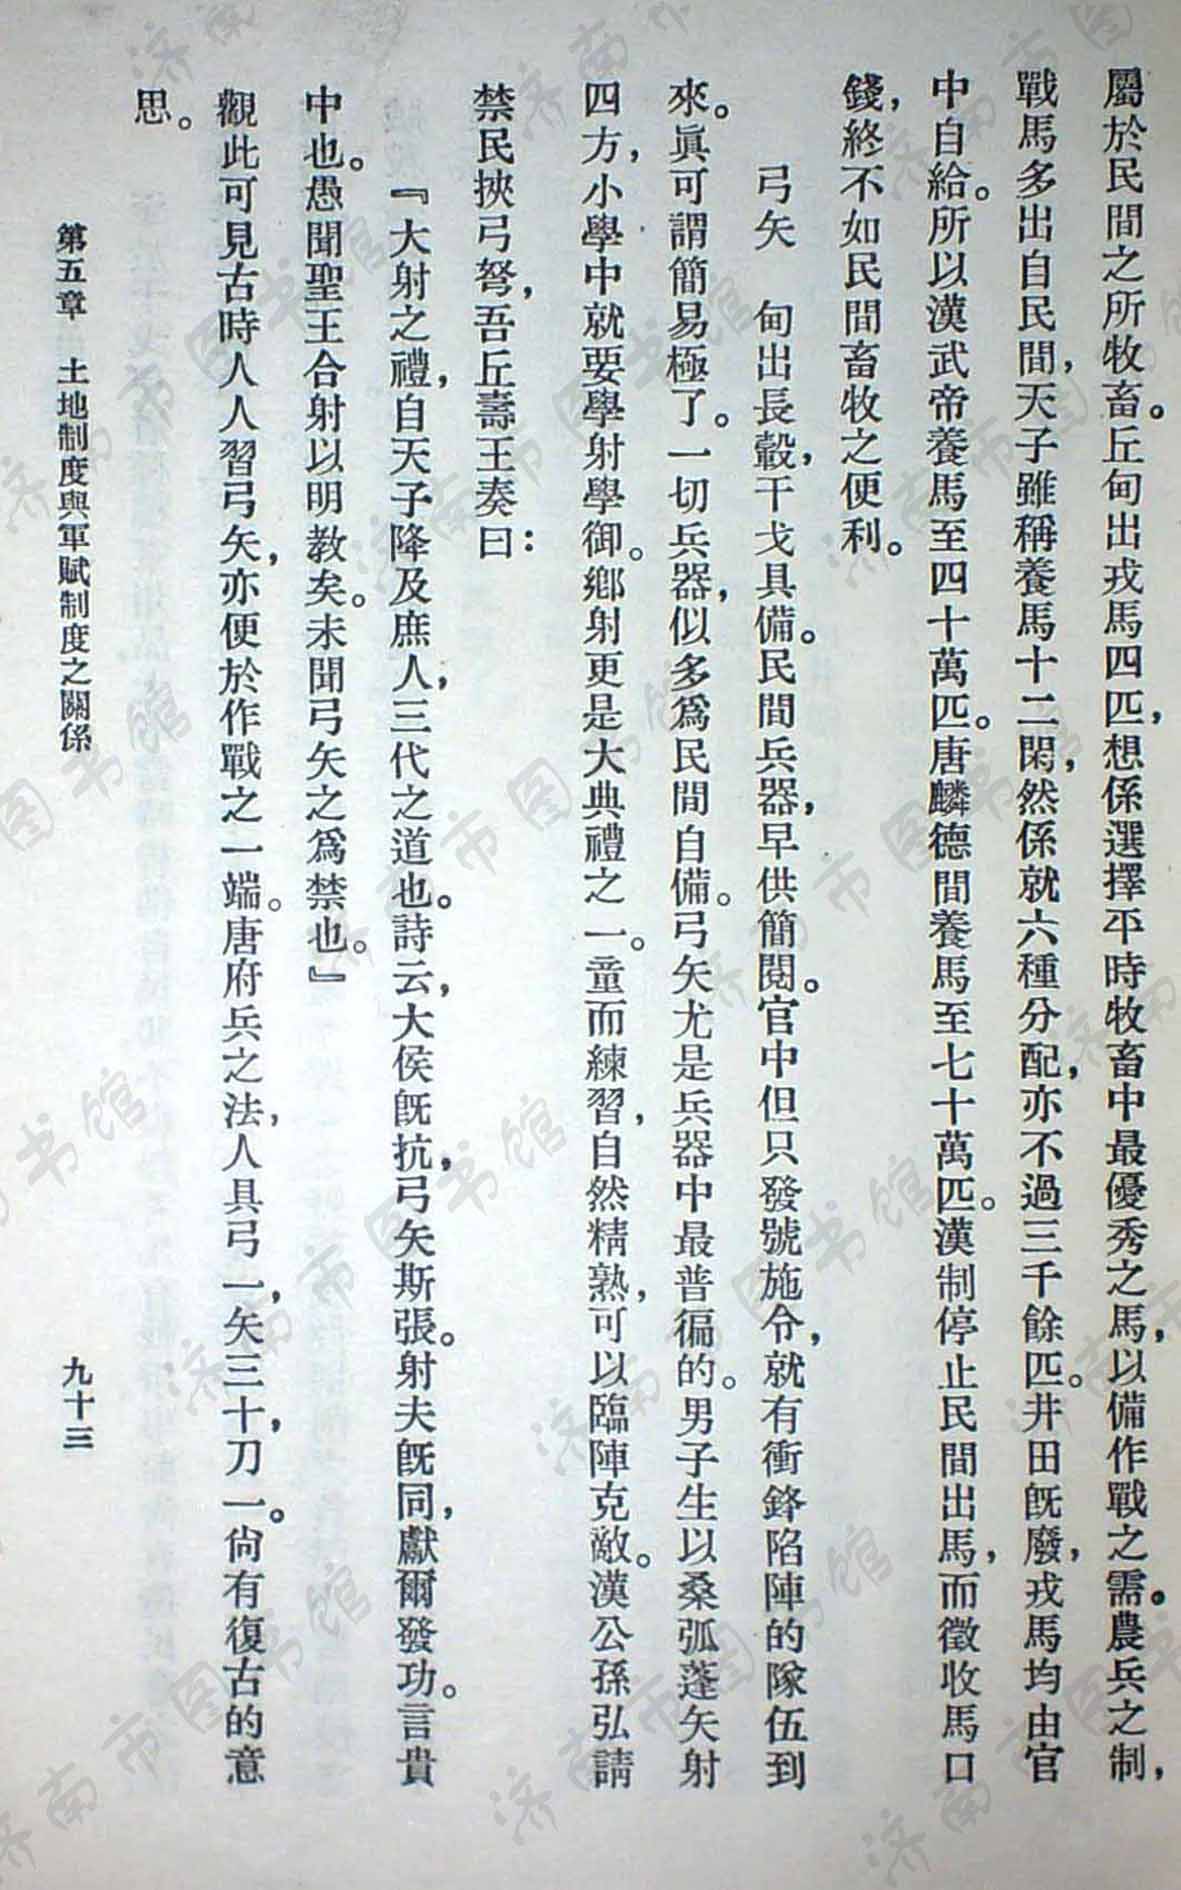 屬於民間之所牧畜。丘甸出戎馬四匹，想係選擇平時牧畜中最優秀之馬，以備作戰之需。農兵之制，
戰馬多出自民間，天子雖稱養馬十二閑，然係就六種分配，亦不過三千餘匹。井田旣廢，戎馬均由官
中自給。所以漢武帝養馬至四十萬匹。唐麟德間養馬至七十萬匹。漢制停止民間出馬，而徵收馬口
錢，終不如民間畜牧之便利。
弓矢　甸出長轂，干戈具備。民間兵器，早供簡閱。官中但只發號施令，就有衝鋒陷陣的隊伍到
來。眞可謂簡易極了。一切兵器，似多爲民間自備。弓矢尤是兵器中最普徧的。男子生以桑弧蓬矢射
四方，小學中就要學射學御。鄕射更是大典禮之一。童而練習，自然精熟，可以臨陣克敵。漢公孫弘請
禁民挾弓弩，吾丘壽王奏曰：
『大射之禮，自天子降及庶人，三代之道也。詩云，大侯旣抗，弓矢斯張。射夫旣同，獻爾發功。言貴
中也。愚聞聖王合射以明教矣。未聞弓矢之爲禁也。』
觀此可見古時人人習弓矢，亦便於作戰之一端。唐府兵之法，人具弓一，矢三十，刀一。尙有復古的意
思。
第五章　土地制度與軍賦制度之關係
九十三
济南市图书馆